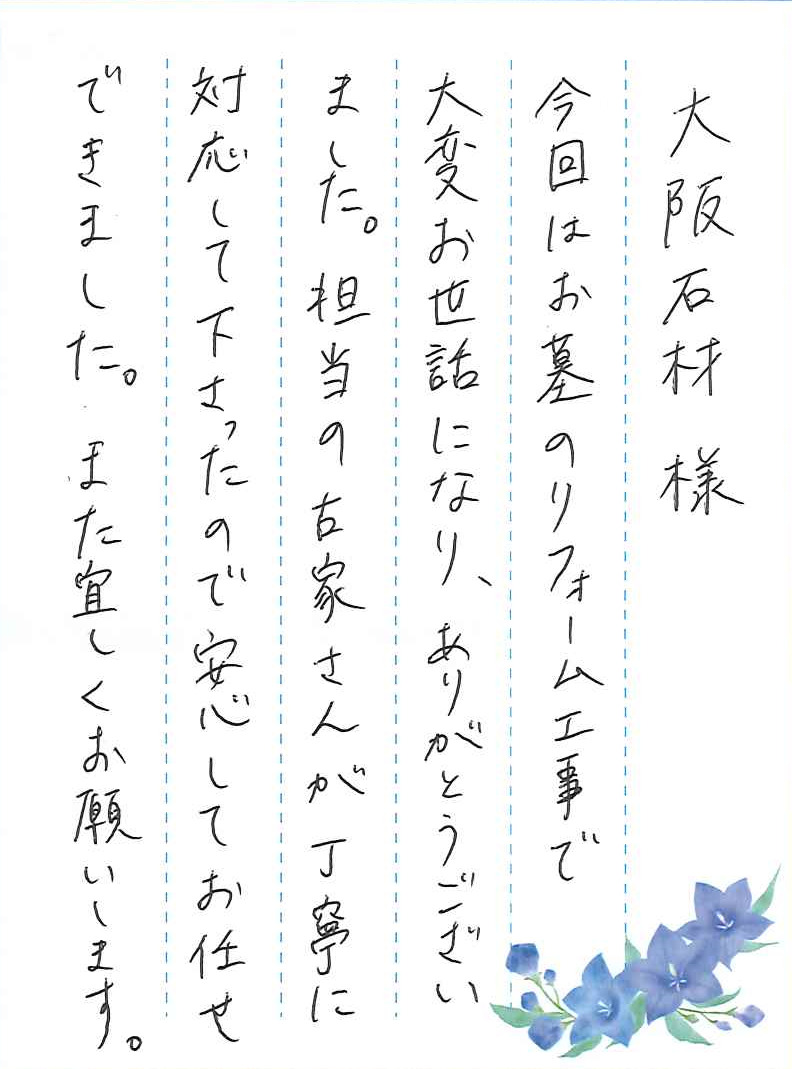 大阪石材 様
今回はお墓のリフォーム工事で
大変お世話になり、ありがとうござい
ました。担当の古家さんが丁寧に
対応して下さったので安心してお任せ
できました。また宜しくお願いします。